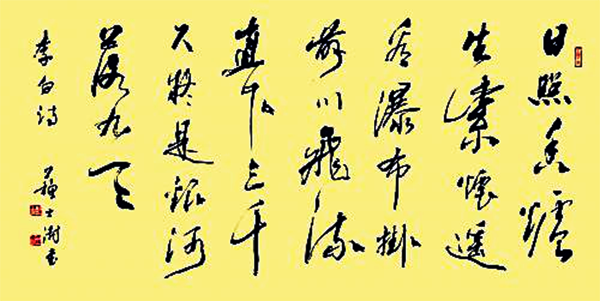 日照香爐
生紫煙遥
看瀑布掛
前川飛流
直下三千
尺疑是銀河
落九天
李白诗
蘇士澍书